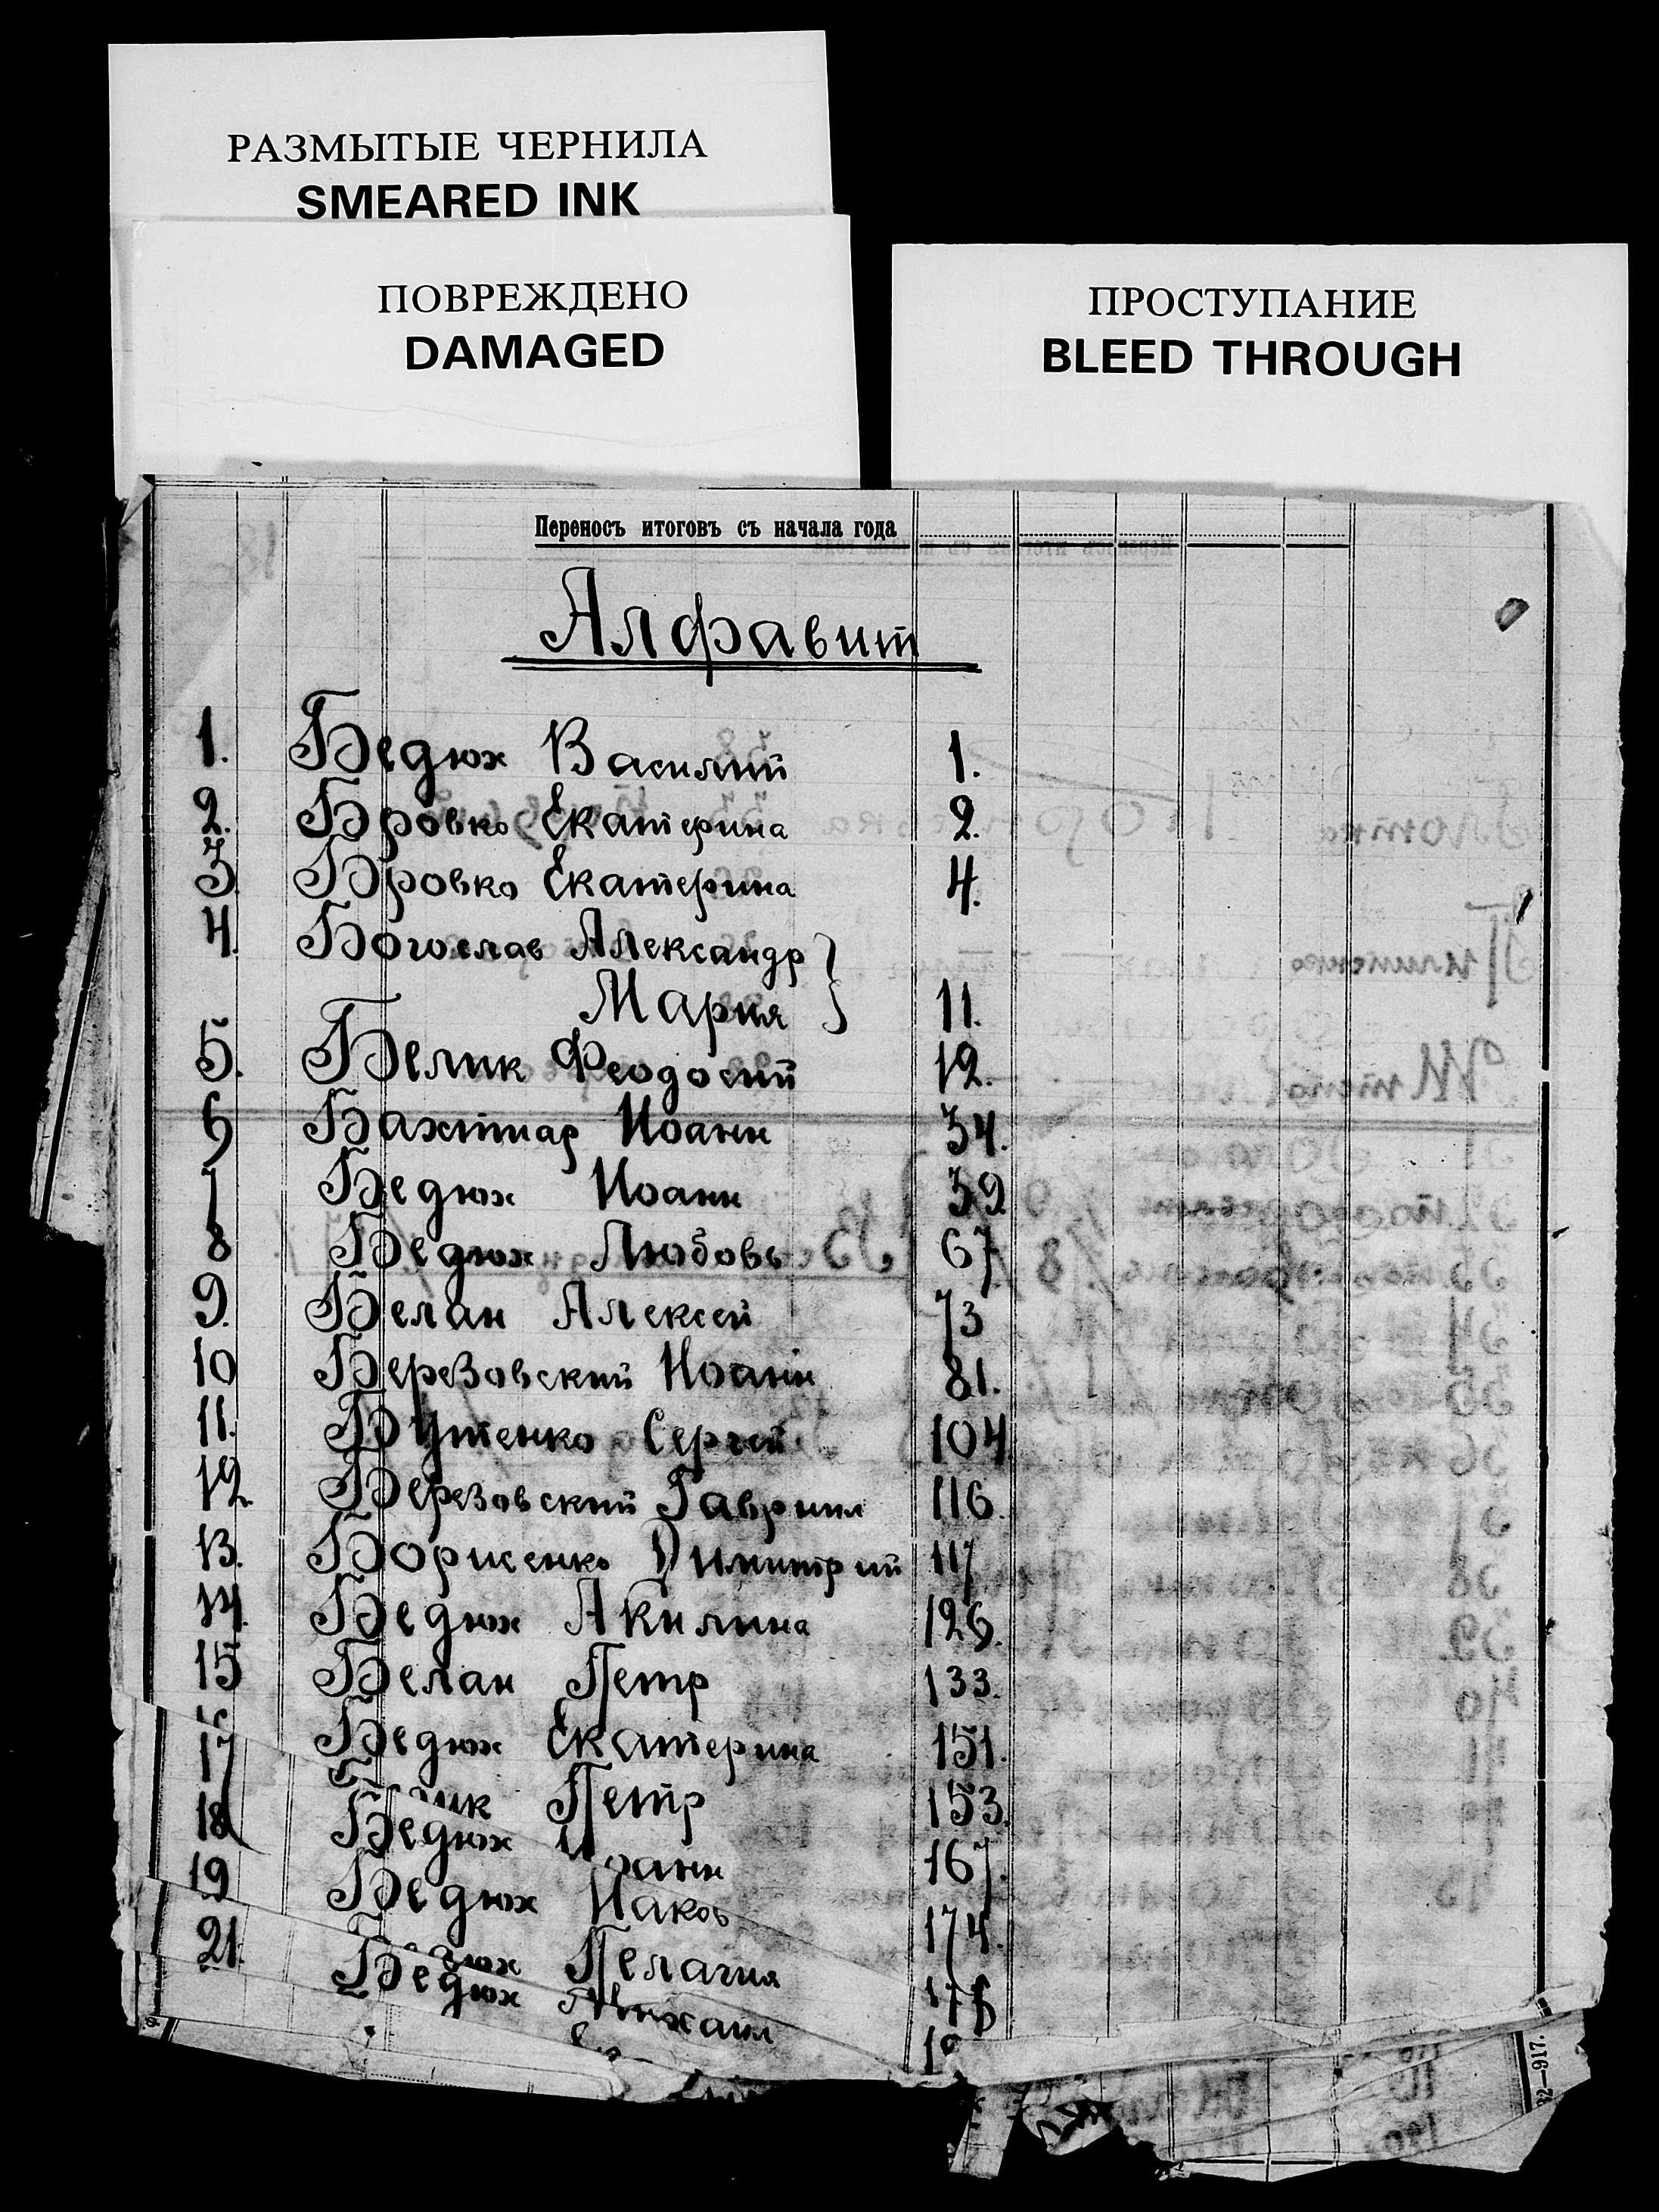 РАЗМЫТЫЕ ЧЕРНИЛА
SMEARED INK
ПОВРЕЖДЕНО
DAMAGED
ПРОСТУПАНИЕ
BLEED THROUGH
Переносъ итоговъ съ начала года
Алфавит
1. Бедюх Василий 1.
2. Бровко Екатерина 2.
3. Бровко Екатерина 4.
4. Богослав Александр }
Мария } 11.
5. Белик Феодосий 12.
6 Бахтиар Иоанн 34.
7 Бедюх Иоанн 39
8 Бедюх Любовь 67
9. Белан Алексей 73
10 Березовский Иоанн 81.
11. Бутенко Сергей 104
12. Березовский Гавриил 116
13. Борисенко Димитрий 117
14. Бедюх Акилина 126.
15 Белан Петр 133.
Бедюх Екатерина 151.
17 Петр 153.
18 Бедюх Иоанн 167.
19 Бедюх Иаков 174.
Пелагия
21. Бедюх Михаил